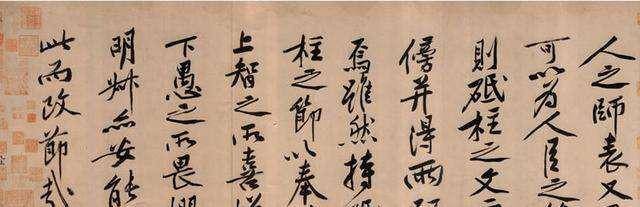 人之師表又
可以為人臣之
則砥柱之文
傍并得兩
焉雖然持
柱之節以奉
上智之所喜
下愚之所畏懼
明叔亦安能
此而改節哉